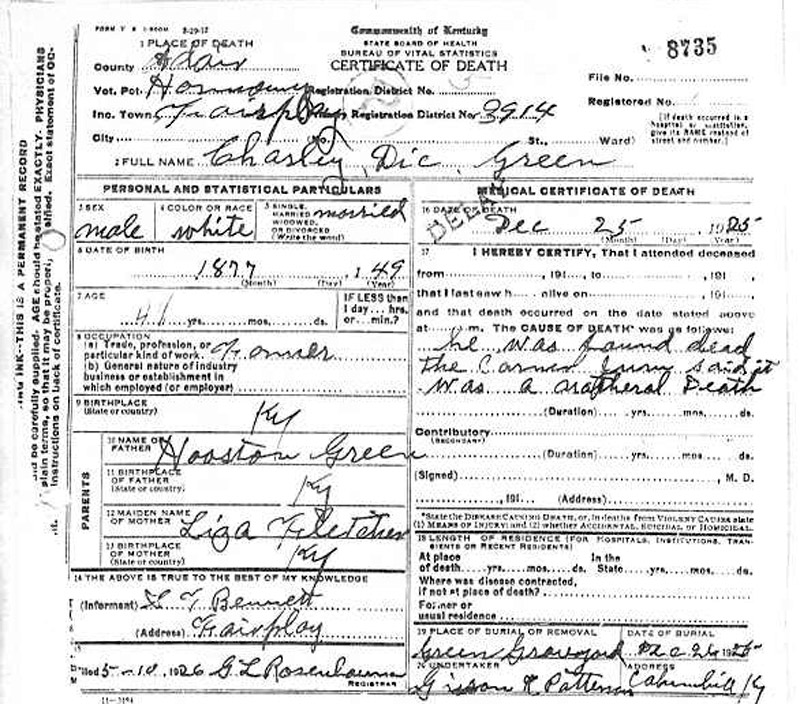 FORM V. S. 8-29-12
Commonwealth of Kentucky
STATE BOARD OF HEALTH
BUREAU OF VITAL STATISTICS
CERTIFICATE OF DEATH
8735
1 PLACE OF DEATH
County Adair
Vot. Pct. Harmony Registration District No.
File No.
Inc. Town Fairplay Primary Registration District No. 3914
Registered No.
City No. St., Ward)
[If death occurred in a hospital or institution, give its NAME instead of street and number.]
2 FULL NAME Charley Dic Green
PERSONAL AND STATISTICAL PARTICULARS
3 SEX male
4 COLOR OR RACE white
5 SINGLE, MARRIED, WIDOWED, OR DIVORCED (Write the word) married
6 DATE OF BIRTH
1877, 149
(Month) (Day) (Year)
7 AGE
4 yrs. mos. ds.
IF LESS than 1 day... hrs. or... min.?
8 OCCUPATION
(a) Trade, profession, or particular kind of work.
(b) General nature of industry business or establishment in which employed (or employer)
9 BIRTHPLACE (State or country) Ky
PARENTS
10 NAME OF FATHER Hooston Green
11 BIRTHPLACE OF FATHER (State or country) Ky
12 MAIDEN NAME OF MOTHER Liza Fletcher
13 BIRTHPLACE OF MOTHER (State or country) Ky
14 THE ABOVE IS TRUE TO THE BEST OF MY KNOWLEDGE
(Informant) Bennett
(Address) Fairplay
15
Filed 5-10, 1926 G L Rosenbaum
REGISTRAR
11-3184
MEDICAL CERTIFICATE OF DEATH
DELAYED
16 DATE OF DEATH
Dec 25 1925
(Month) (Day) (Year)
17 I HEREBY CERTIFY, That I attended deceased
from , 191 , to , 191 ,
that I last saw h alive on , 191 ,
and that death occurred on the date stated above
at m. The CAUSE OF DEATH* was as follows:
he was found dead
the Corner Jury said it
was a natheral Death
(Duration) yrs. mos. ds.
Contributory
(SECONDARY)
(Duration) yrs. mos. ds.
(Signed) , M. D.
, 191 (Address)
*State the DISEASE CAUSING DEATH, or, in deaths from VIOLENT CAUSES state
(1) MEANS OF INJURY; and (2) whether ACCIDENTAL, SUICIDAL or HOMICIDAL.
18 LENGTH OF RESIDENCE (FOR HOSPITALS, INSTITUTIONS, TRANSIENTS OR RECENT RESIDENTS)
At place of death yrs. mos. ds. In the State yrs. mos. ds.
Where was disease contracted, if not at place of death?
Former or usual residence
19 PLACE OF BURIAL OR REMOVAL Green Graveyard
DATE OF BURIAL Dec 26 1925
20 UNDERTAKER Patterson
ADDRESS Ky
ING INK—THIS IS A PERMANENT RECORD
uld be carefully supplied. AGE should be stated EXACTLY. PHYSICIANS
plain terms, so that it may be properly classified. Exact statement of OC-
Instructions on back of certificate.